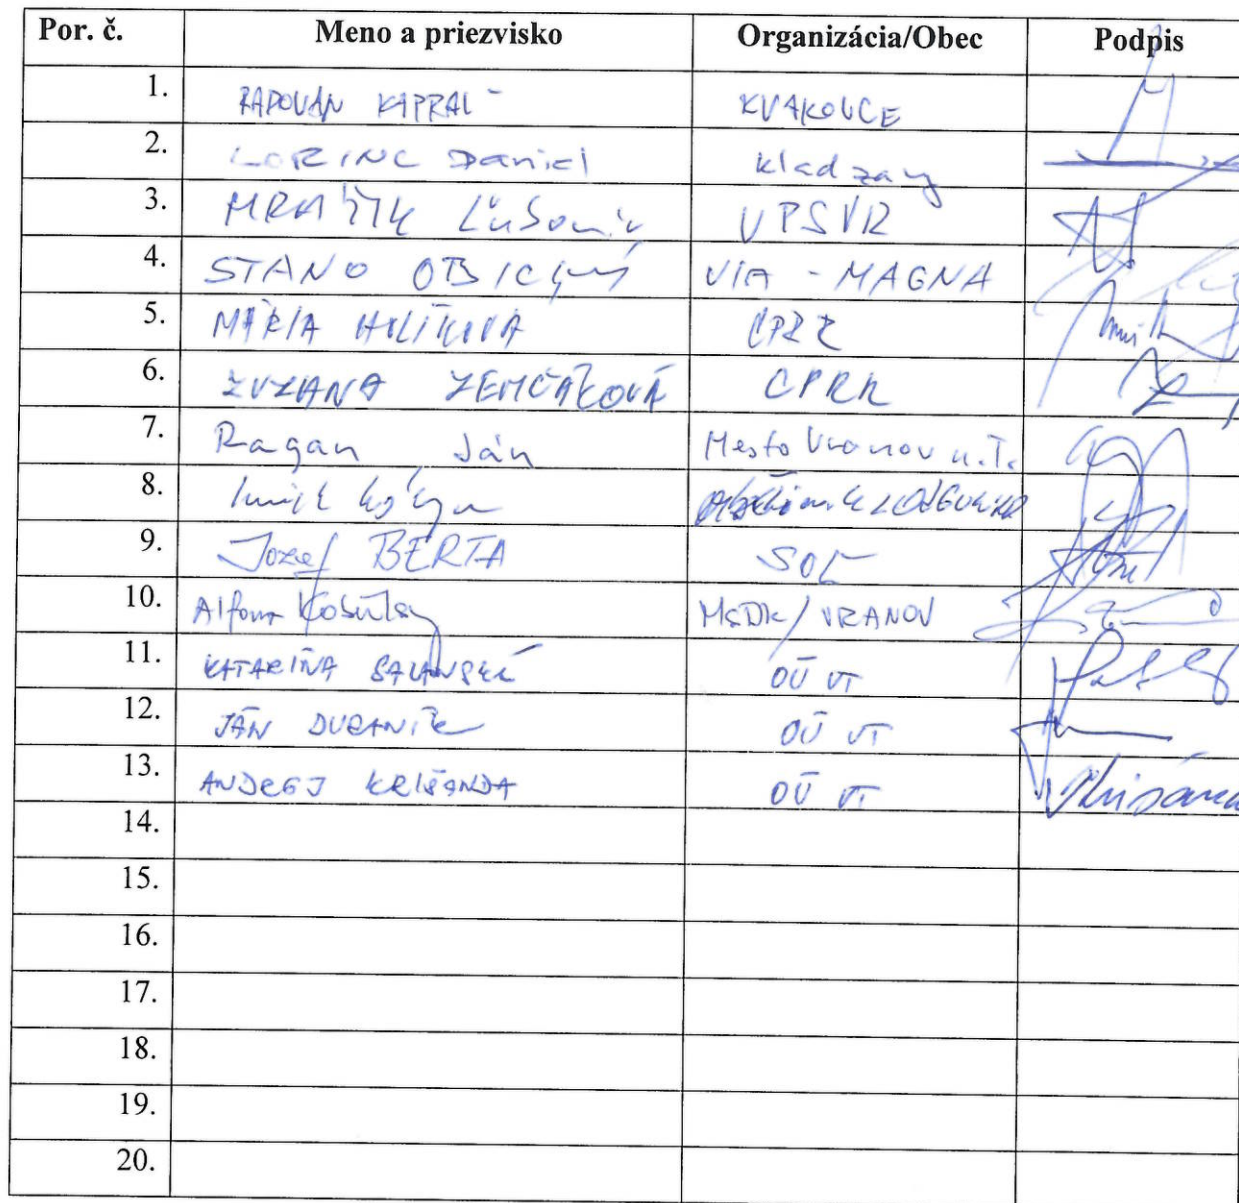 Por. č. Meno a priezvisko Organizácia/Obec Podpis
1. RADOVAN KAPRAĽ KVAKOVCE
2. LORINC Daniel Kladzany
3. MRÁZIK Ľubomír UPSVR
4. STANO OBICKÝ VIA - MAGNA
5. MÁRIA CPRR
6. ZUZANA ZEMČÁKOVÁ CPRR
7. Ragan Ján Mesto Vranov n.T.
8.
9. Jozef BERTA SOĽ
10. Alfonz Kobúlsky MsDK / VRANOV
11. KATARÍNA OÚ VT
12. JÁN DURANÍK OÚ VT
13. ANDREJ KRIŠANDA OÚ VT
14.
15.
16.
17.
18.
19.
20.